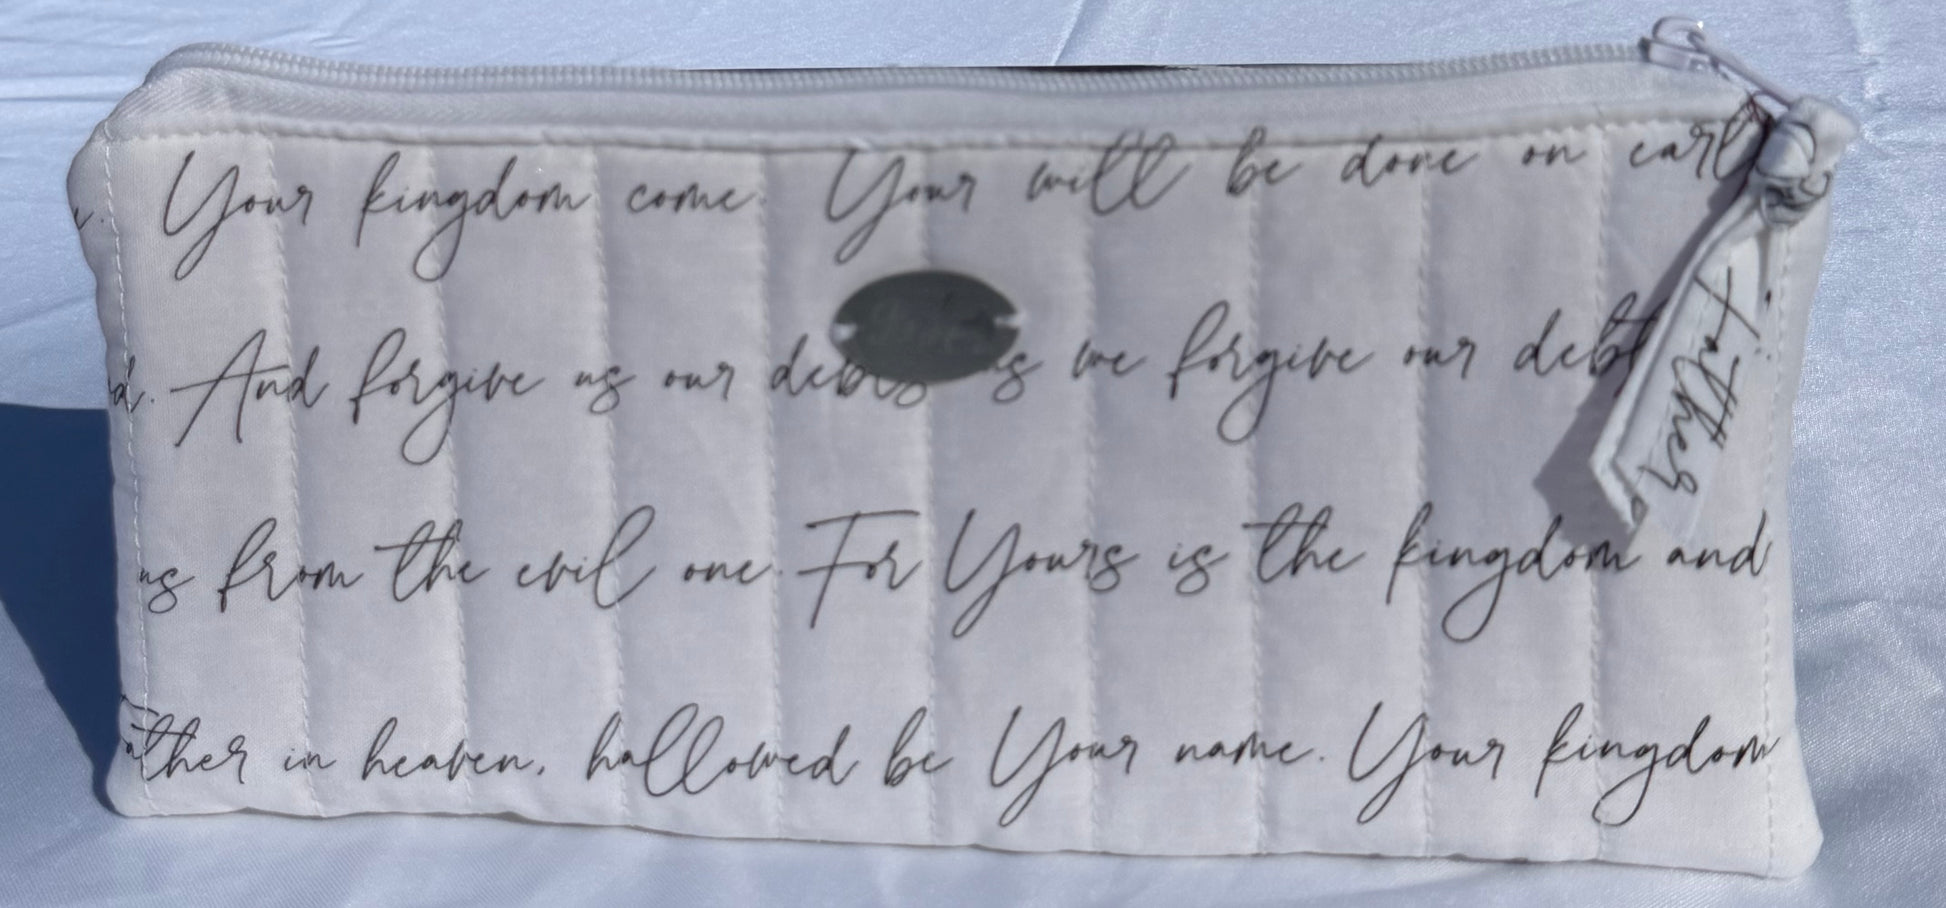 Your kingdom come. Your will be done on eart
d. And forgive us our debts as we forgive our debt
us from the evil one. For Yours is the kingdom and
ather in heaven, hallowed be Your name. Your kingdom
Father